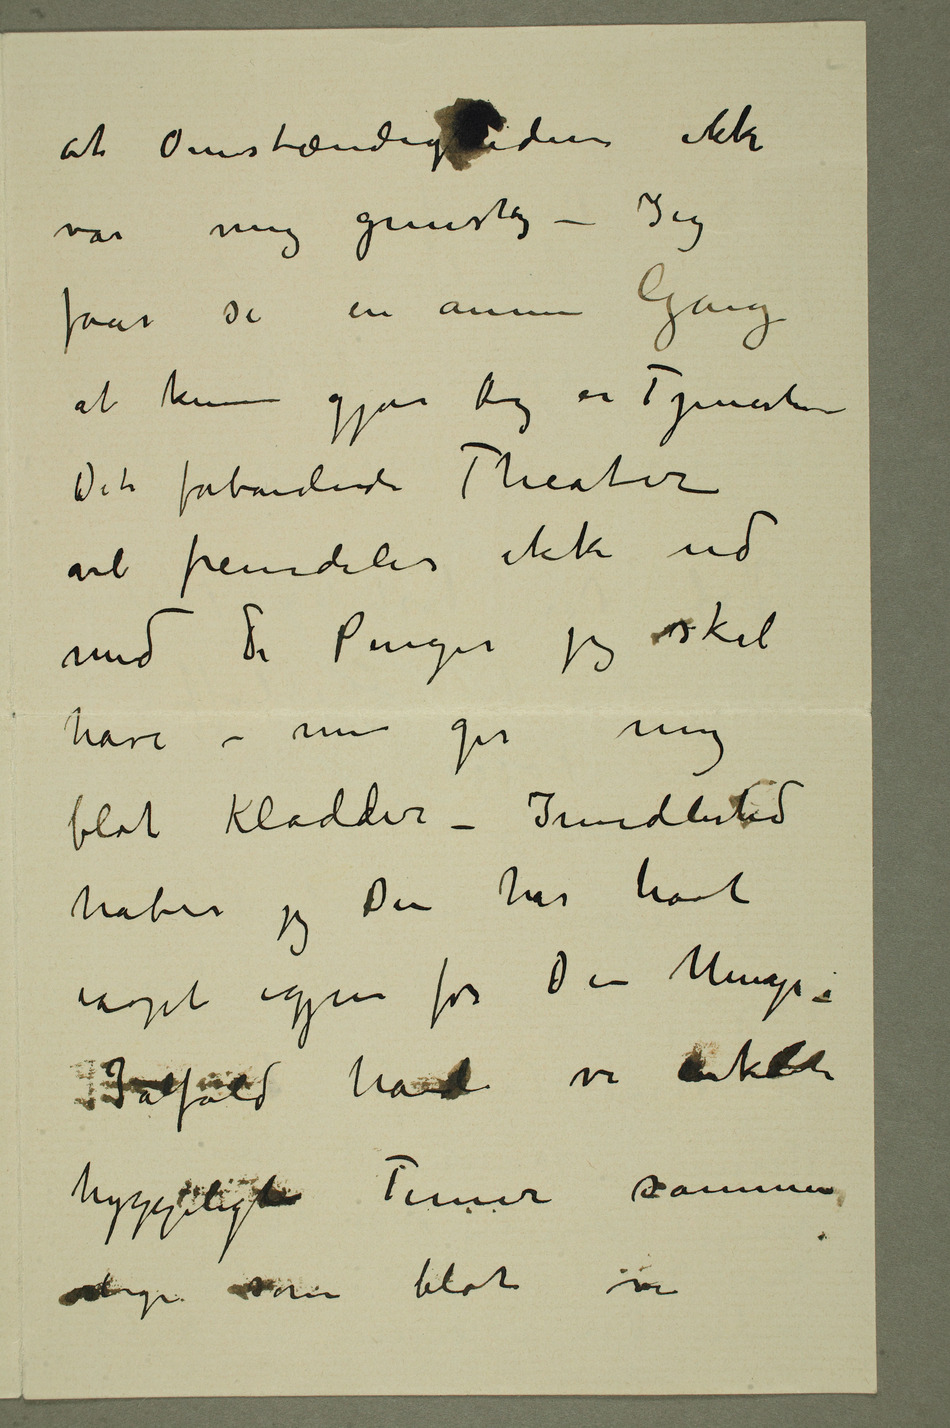 at Omstændigheden ikke
var mig gunstig – Jeg
faar se en annen Gang
at kunne gjøre dig en Tjeneste
Det forbandede Theater
vil fremdeles ikke ud
med de Penger jeg skal
have – men ger mig
blot Kladder – Imidlertid
haber jeg Du har havt
noget igjen for Din Umage –
Ialfald havde vi enkelte
hyggelige Timer sammen
slige som blot vi